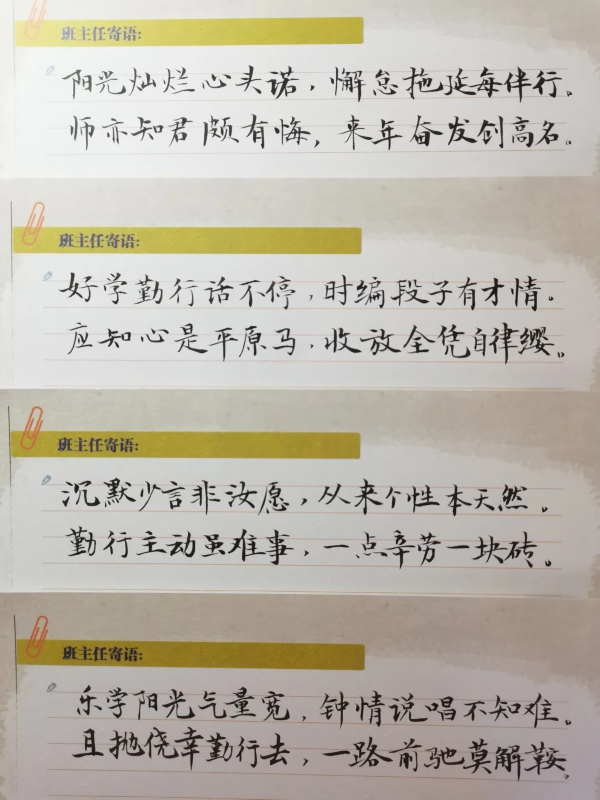 班主任寄语:
阳光灿烂心头诺，懈怠拖延每伴行。
师亦知君颇有悔，来年奋发创高名。
班主任寄语:
好学勤行话不停，时编段子有才情。
应知心是平原马，收放全凭自律缨。
班主任寄语:
沉默少言非汝愿，从来个性本天然。
勤行主动虽难事，一点辛劳一块砖。
班主任寄语:
乐学阳光气量宽，钟情说唱不知难。
且抛侥幸勤行去，一路前驰莫解鞍。